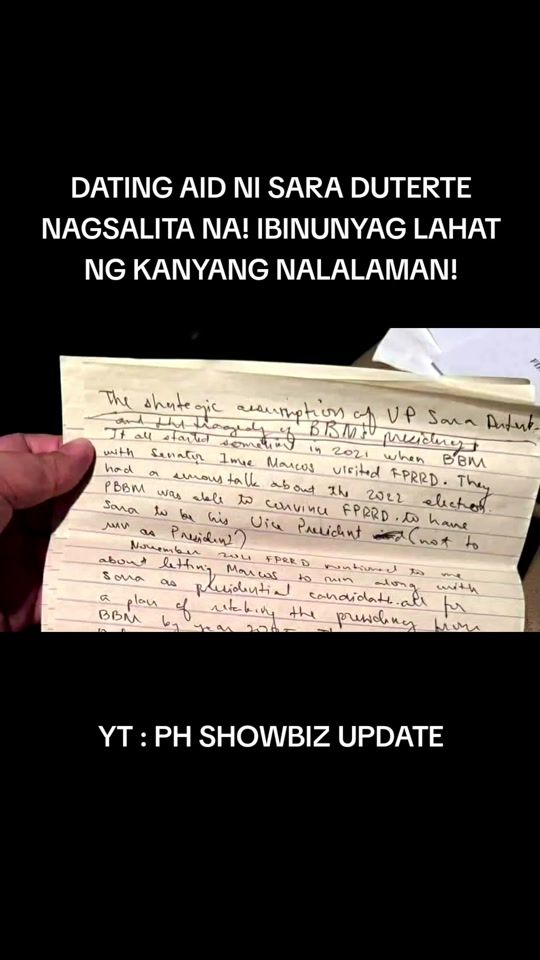 DATING AID NI SARA DUTERTE
NAGSALITA NA! IBINUNYAG LAHAT
NG KANYANG NALALAMAN!
The strategic assumption of VP Sara Dutert
and the tragedy of BBM's presidency
It all started sometime in 2021 when BBM
with Senator Imee Marcos visited FPRRD. They
had a serious talk about the 2022 election.
PBBM was able to convince FPRRD to have
Sara to be his Vice President (not to
run as President)
November 2021 FPRRD mentioned to me
about letting Marcos to run along with
Sara as presidential candidate all for
a plan of retaking the presidency from
BBM by year
YT : PH SHOWBIZ UPDATE